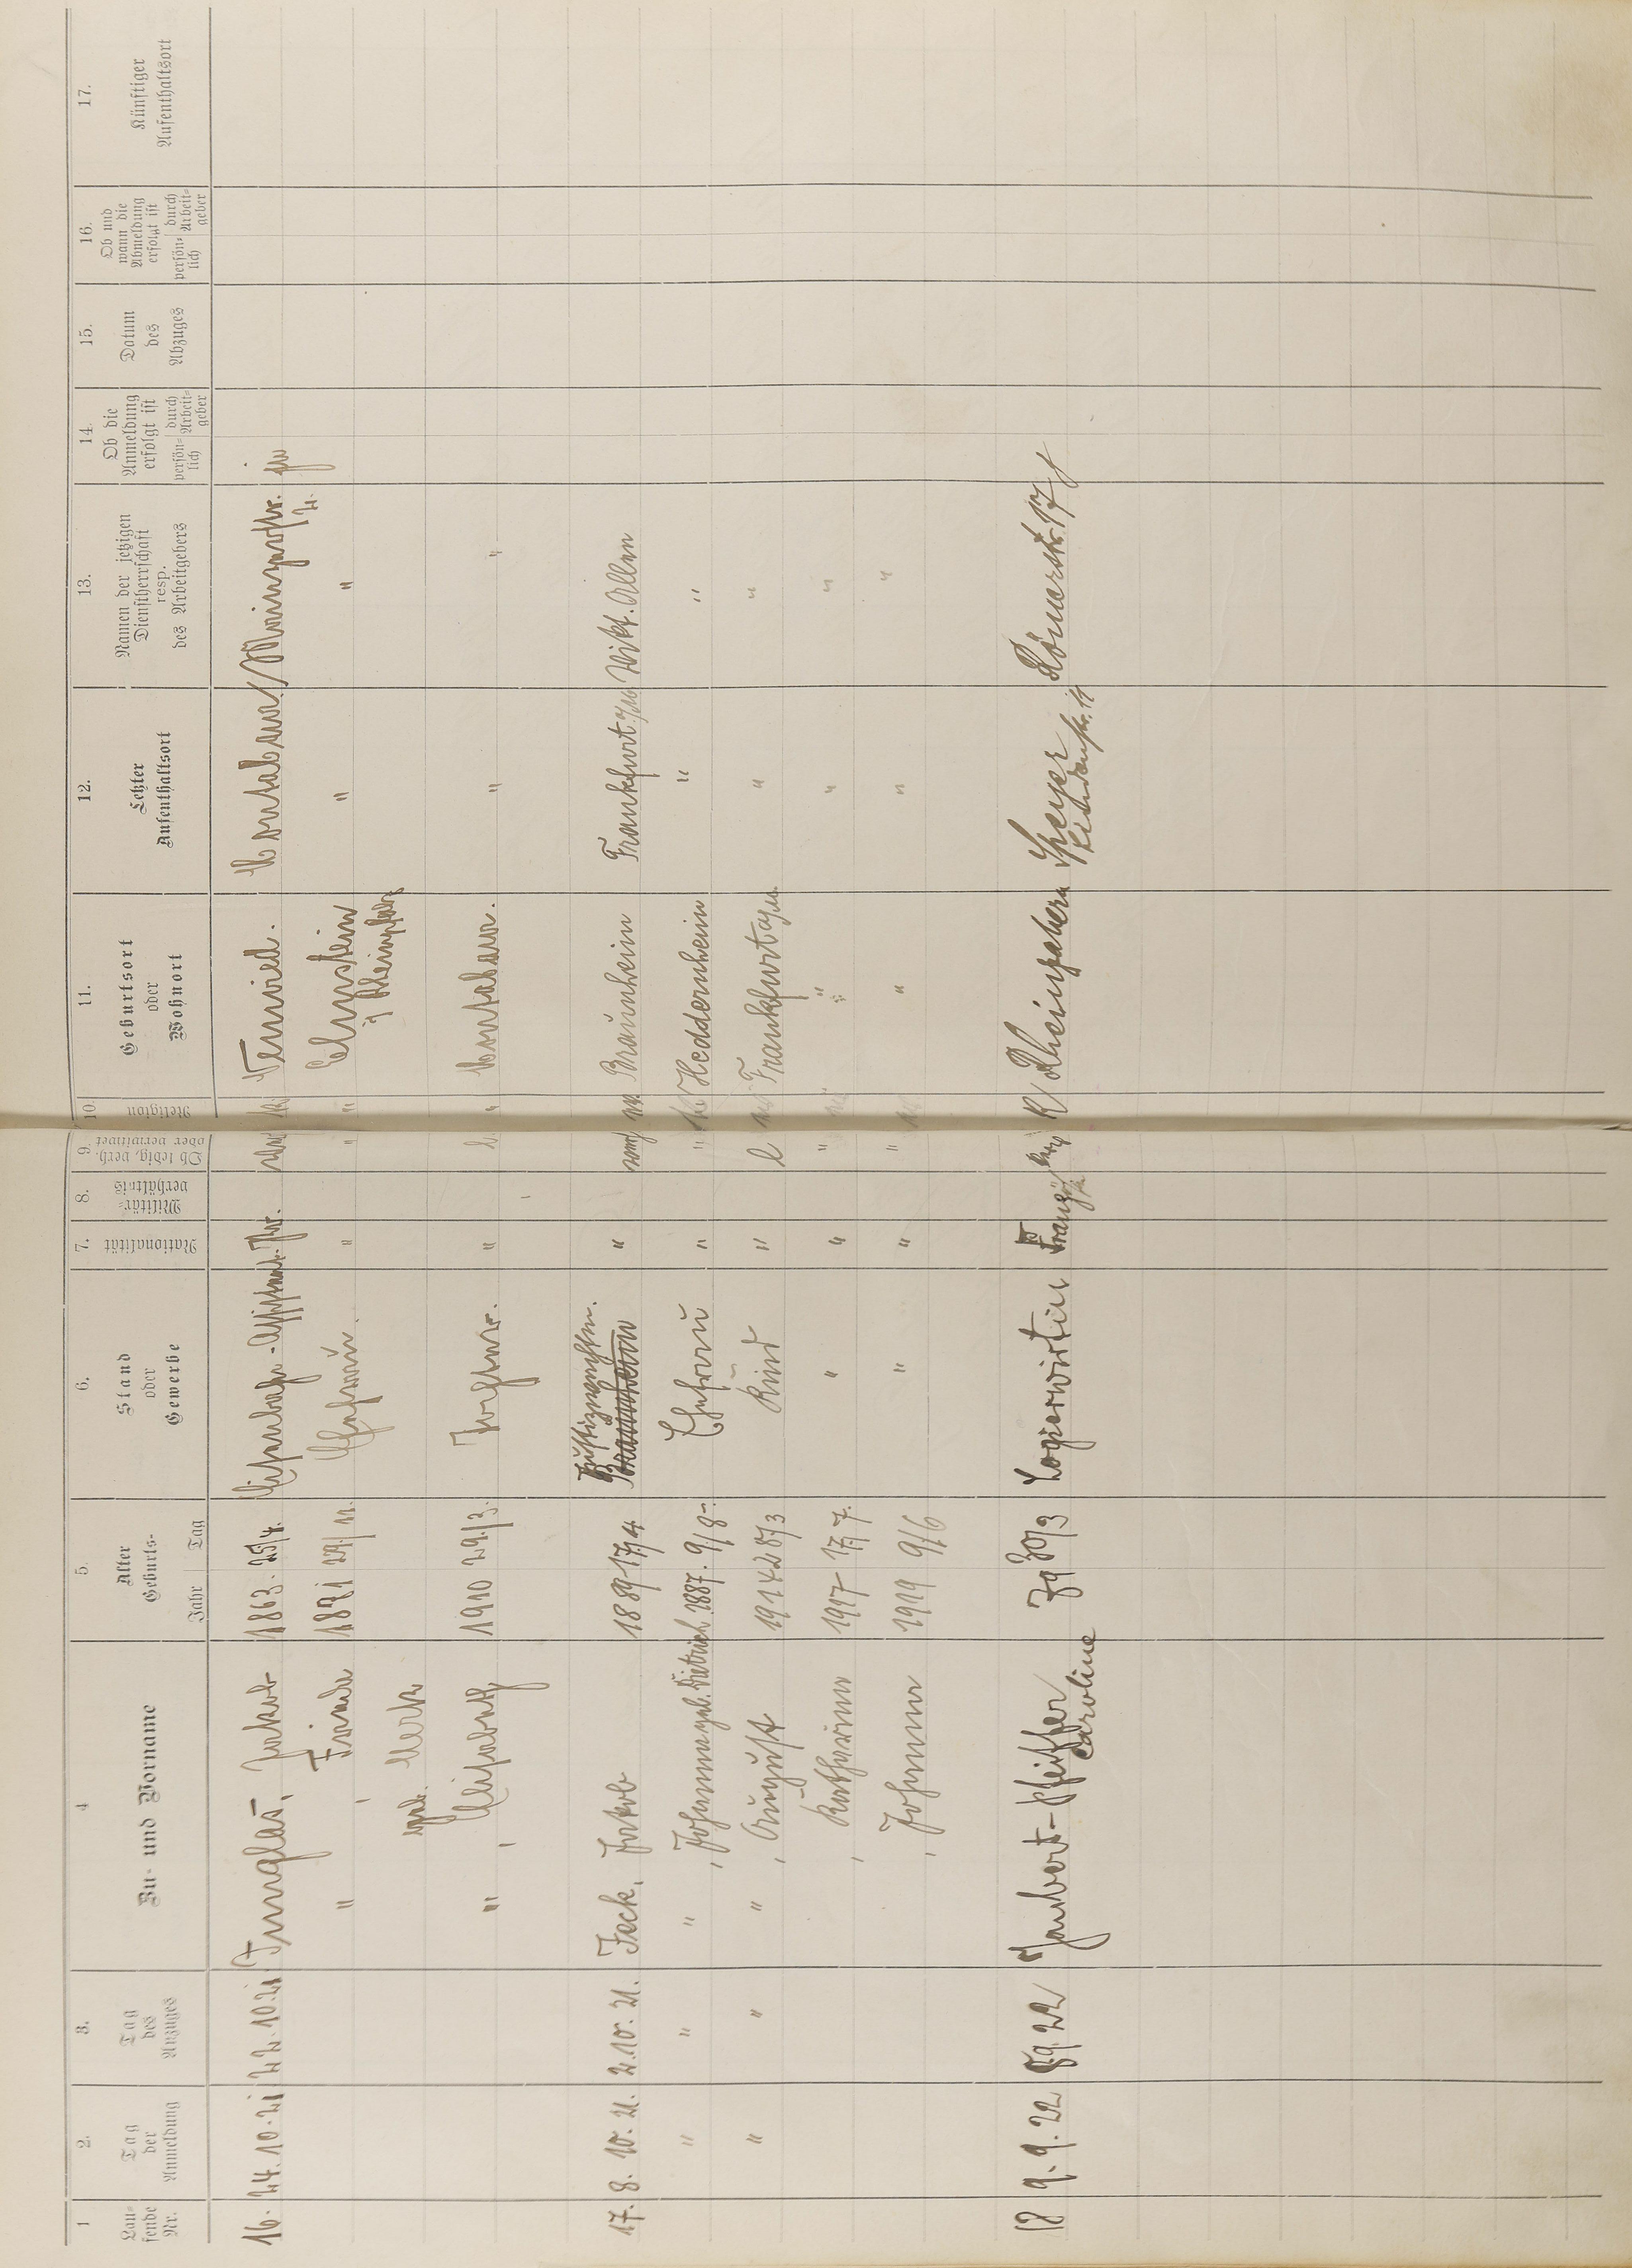 1 2. 3. 4 5. 6. 7. 8. 9. 10. 11. 12. 13. 14. 15. 16. 17.
Lau-
fende
Nr.
Tag
der
Anmeldung
Tag
des
Anzuges
Zu- und Vorname
Alter
Geburts-
Jahr Tag
Stand
oder
Gewerbe
Nationalität
Militär-
verhältnis
Ob ledig, verh.
oder verwitwet
Religion
Geburtsort
oder
Wohnort
Letzter
Aufenthaltsort
Namen der jetzigen
Dienstherrschaft
resp.
des Arbeitgebers
Ob die
Anmeldung
erfolgt ist
persön-
lich
durch
Arbeit-
geber
Datum
des
Abzuges
Ob und
wann die
Abmeldung
erfolgt ist
persön-
lich
durch
Arbeit-
geber
Künftiger
Aufenthaltsort
16. 24.10.21 22.10.21 Jakob 1863. 25/4. Eisenbahn-Assistent Pr. Neuwied. Montabaur Mainzerstr.
2.
" , 18 29/11. Ehefrau " " " "
geb. Merk
" , Elisabeth 1910 29./3. " l. " Montabaur. " "
17. 8. 10. 21. 2. 10. 21. Jeck, Jakob 1889 17/4 " Braunheim Frankfurt a/M Vikt. Allee
" " " , Johanna geb. Dietrich 1887. 9/8. Ehefrau " " Heddernheim " "
" " " , August 1914 28/3 Kind " l Frankfurt a/M. " "
, Katharina 1917 17/7. " " " " " "
, Johanna 1919 9/6 " " " " " "
18 9. 9. 22 8.9.22 Jambert-Pfeiffer
Caroline 79 30/3 Logierwirtin R Rheinzabern Speyer Römerstr. 17